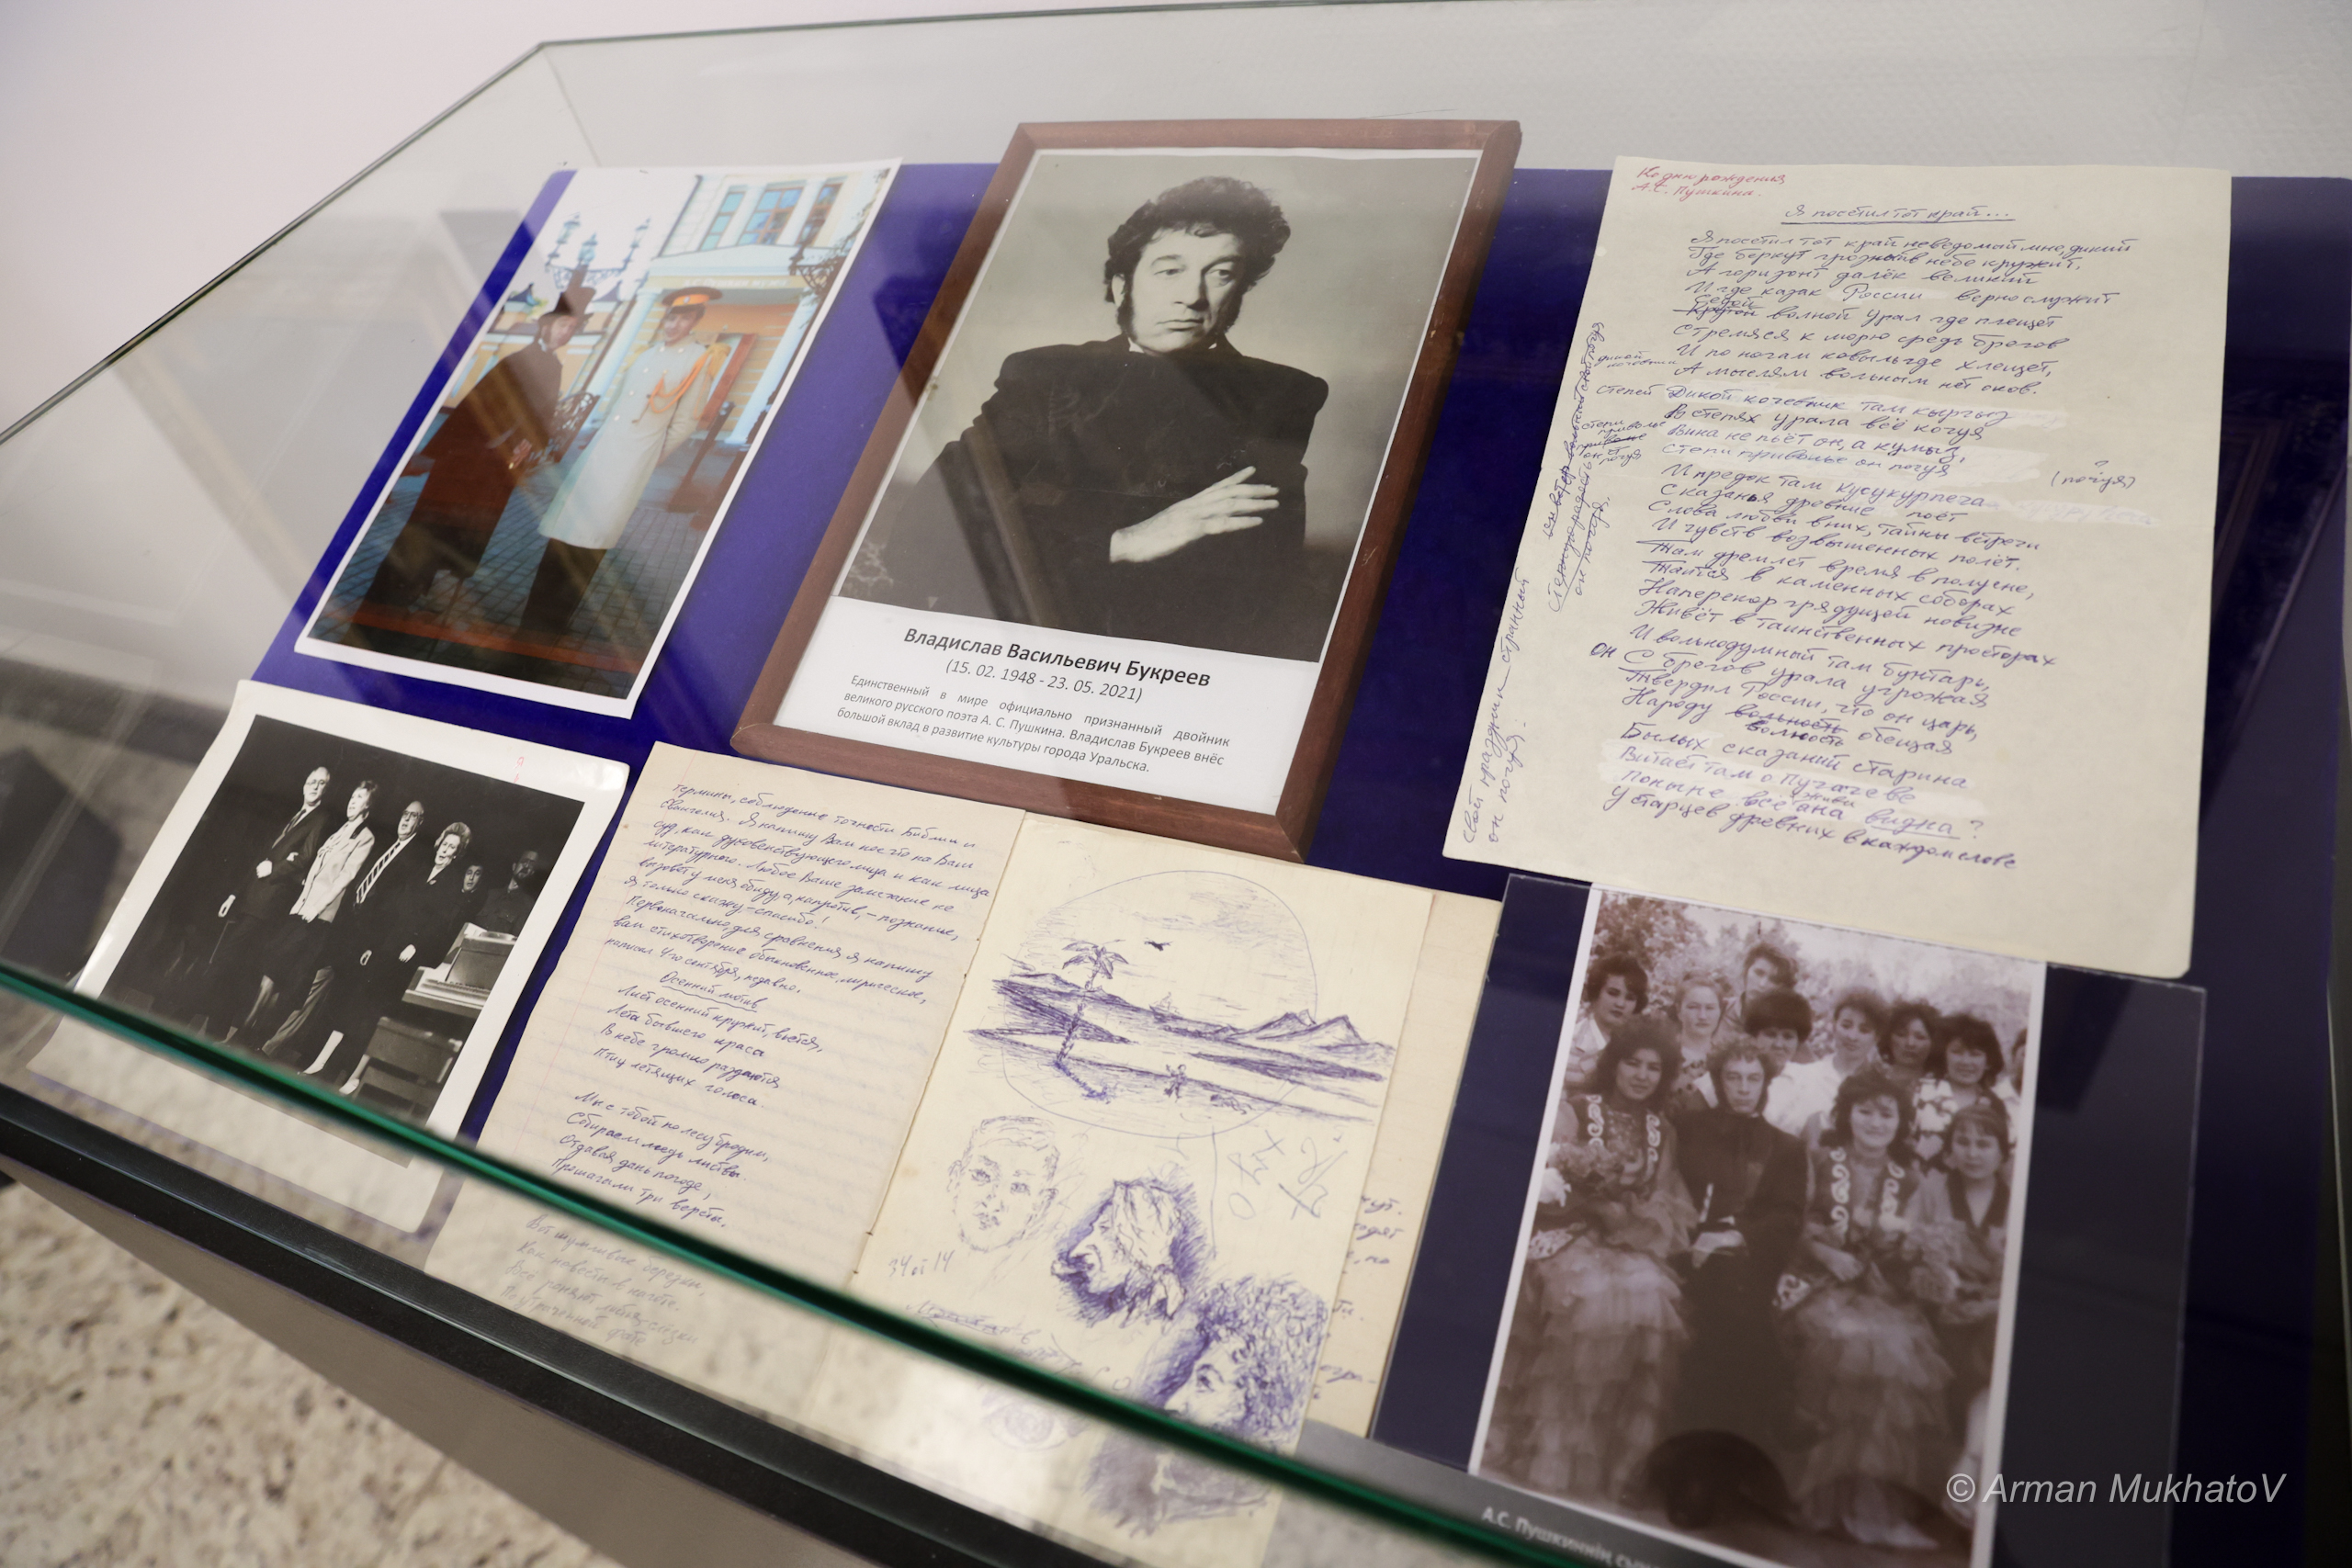 А.С. Пушкин музейі
Владислав Васильевич Букреев
(15. 02. 1948 - 23. 05. 2021)
Единственный в мире официально признанный двойник
великого русского поэта А. С. Пушкина. Владислав Букреев внёс
большой вклад в развитие культуры города Уральска.
Ко дню рождения
А.С. Пушкина.
Я посетил тот край...
Я посетил тот край неведомый мне, дикий
Где беркут грозный в небе кружит,
А горизонт далёк великий
И где казак России верно служит
Седой
Крутой волной Урал где плещет
Стремяся к морю средь брегов
И по ногам ковыль где хлещет,
А мыслям вольным нет оков.
степей Дикой кочевник там кыргыз
В степях урала всё кочуя
Вина не пьёт он, а кумыз,
степи приволье он почуя
(почуя)
?
И предок там Кусукурпеча
Сказанья древние поёт
Слова любви в них, тайны встречи
И чувств возвышенных полёт.
Там дремлет время в полусне,
Таится в каменных соборах
Наперекор грядущей новизне
Живёт в таинственных просторах
И вольнодумный там бунтарь,
он С брегов урала угрожая
Твердил России, что он царь,
Народу вольность обещая
волность
Былых сказаний старина
Витает там о Пугачеве
Поныне всё она видна ?
жива
У старцев древних в каждом слове
степи
приволье
приволье
он почуя
свой праздник странный
он почуя.
он почуя.
термины, соблюдение точности Библии и
Евангелия. Я напишу Вам кое что на Ваш
суд, как духовенствующего лица и как лица
литературного. Любое Ваше замечание не
вызовет у меня обиду, а, напротив, – познание,
Я только скажу – спасибо!
Первоначально для сравнения я напишу
вам стихотворение обыкновенное, лирическое,
написал 4го сентября, недавно.
Осенний мотив
Лист осенний кружит, вьётся,
Лета бывшего краса
В небе громко раздаются
Птиц летящих голоса.
Мы с тобой по лесу бродим,
Собираем медь листвы.
Отдавая дань погоде,
Прошагали три версты.
Вот шумливые березки,
Как невесты в
Все роняют листья слёзки
По утраченной фате
34 от 14
А.С. Пушкиннің
© Arman MukhatoV